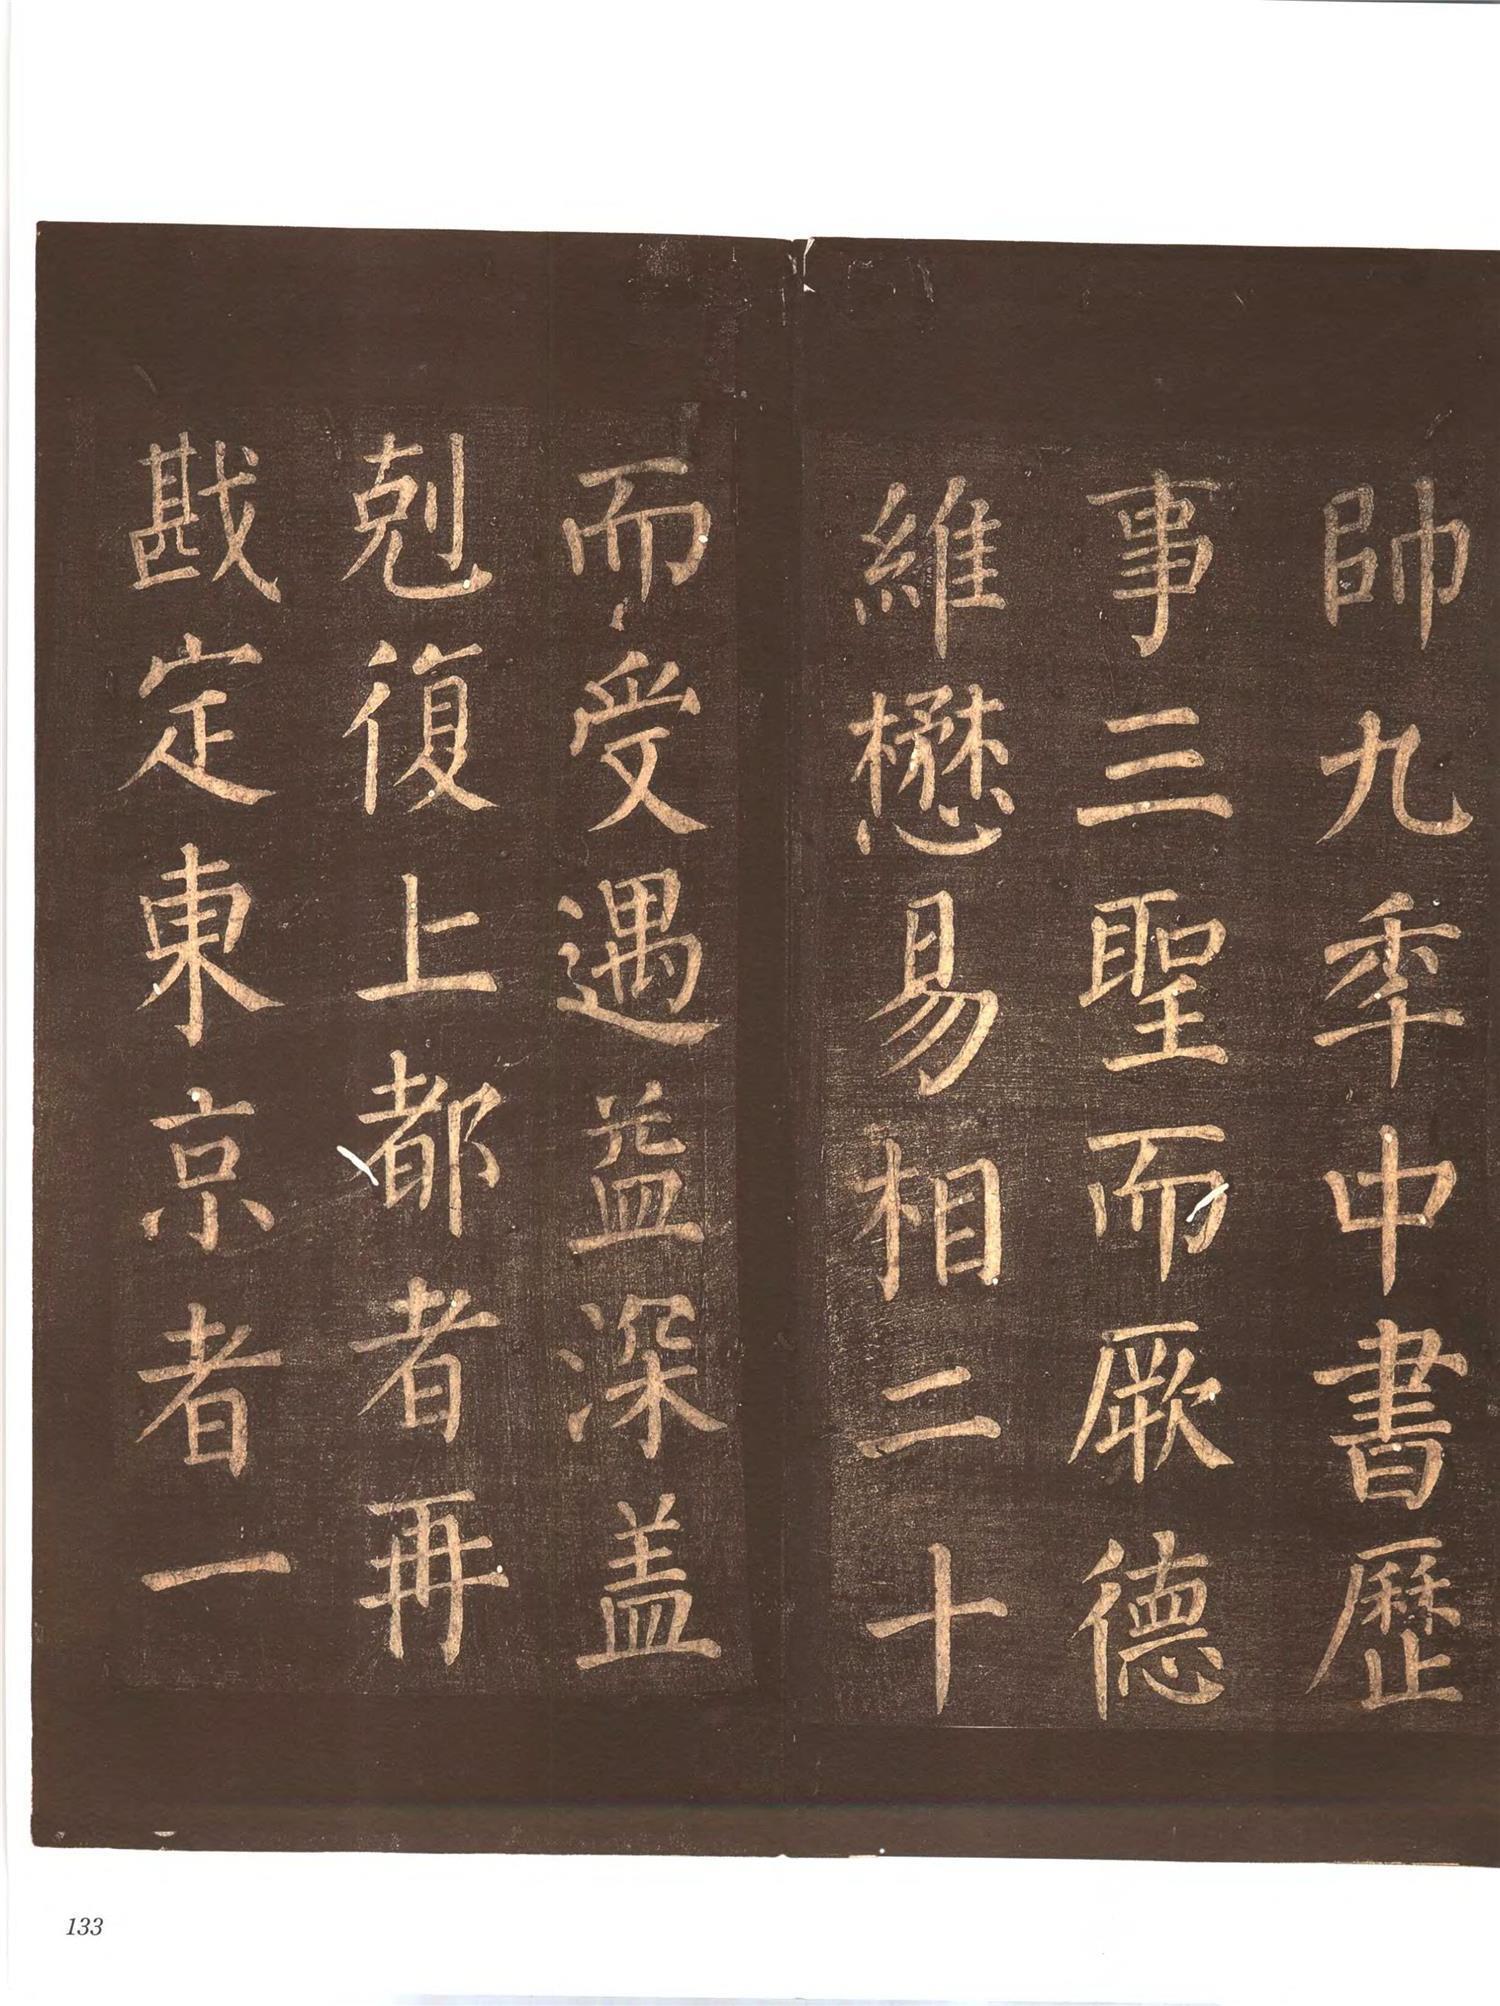 帥九秊中書歷
事三聖而厥德
維懋易相二十
而受遇益深蓋
剋復上都者再
戡定東京者一
133